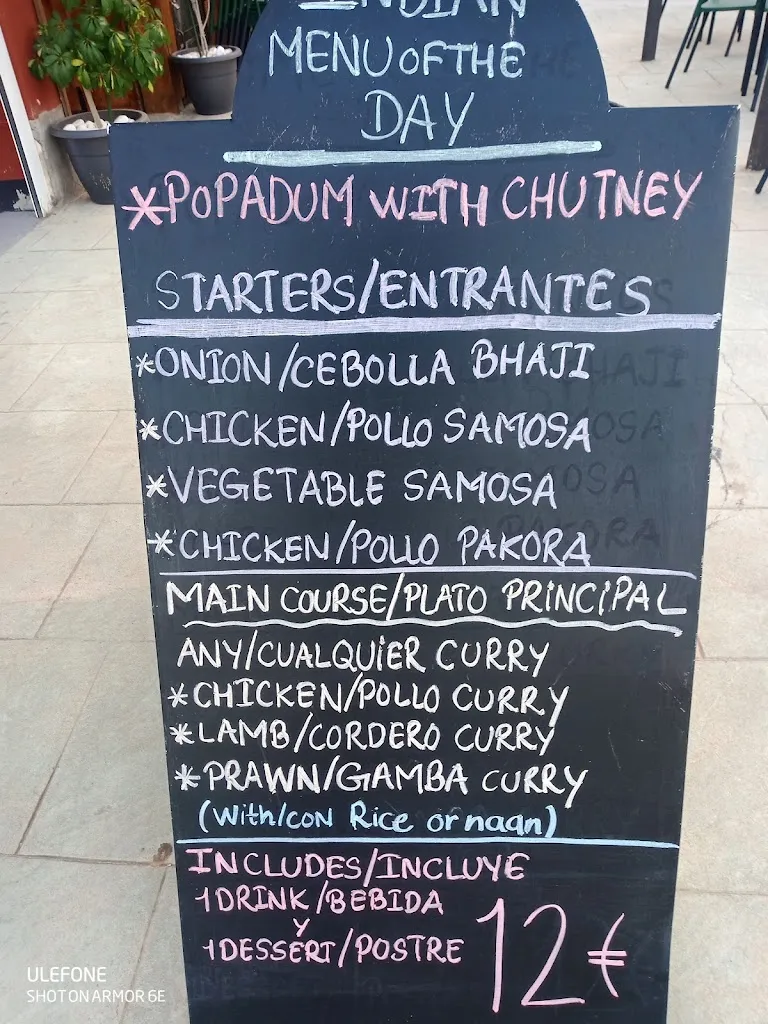 INDIAN
MENU OF THE
DAY
*POPADUM WITH CHUTNEY
STARTERS/ENTRANTES
*ONION/CEBOLLA BHAJI
*CHICKEN/POLLO SAMOSA
*VEGETABLE SAMOSA
*CHICKEN/POLLO PAKORA
MAIN COURSE/PLATO PRINCIPAL
ANY/CUALQUIER CURRY
*CHICKEN/POLLO CURRY
*LAMB/CORDERO CURRY
*PRAWN/GAMBA CURRY
(With/con Rice or naan)
INCLUDES/INCLUYE
1 DRINK/BEBIDA
Y
1 DESSERT/POSTRE
12€
ULEFONE
SHOT ON ARMOR 6E